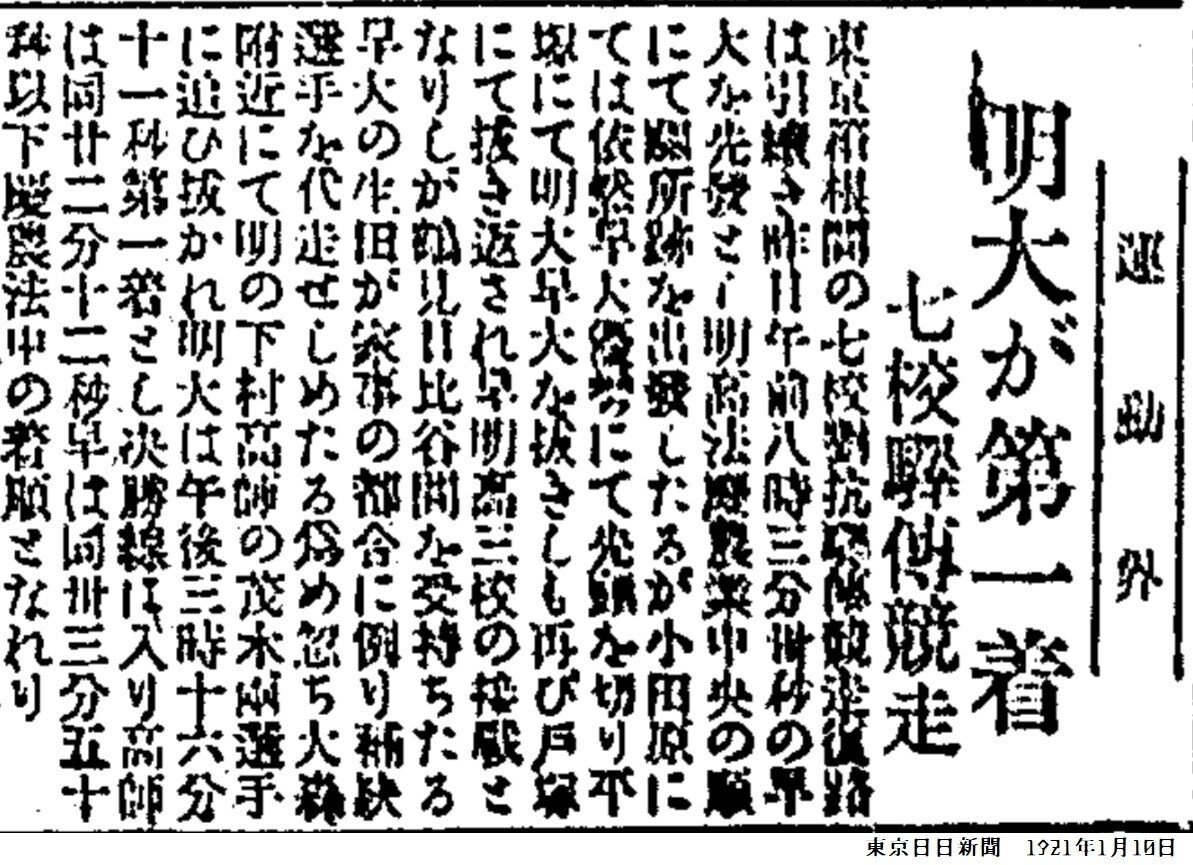 運動界
明大が第一着
七校驛傳競走
東京箱根間の七校對抗驛傳競走復路
は引續き昨日午前八時三分卅秒の早
大を先發とし明高法慶農中央の順
にて關所跡を出發したるが小田原に
ては依然早大優勢にて先頭を切り平
塚にて明大早大を抜きしも再び戸塚
にて抜き返され早明高三校の接戰と
なりしが鶴見日比谷間を受持ちたる
早大の生田が家事の都合に例り補缺
選手を代走せしめたる爲め忽ち大森
附近にて明の下村高師の茂木兩選手
に追ひ抜かれ明大は午後三時十六分
十一秒第一着とし決勝線に入り高師
は同廿二分十二秒早は同卅三分五十
秒以下慶農法中の着順となれり
東京日日新聞 1921年1月10日